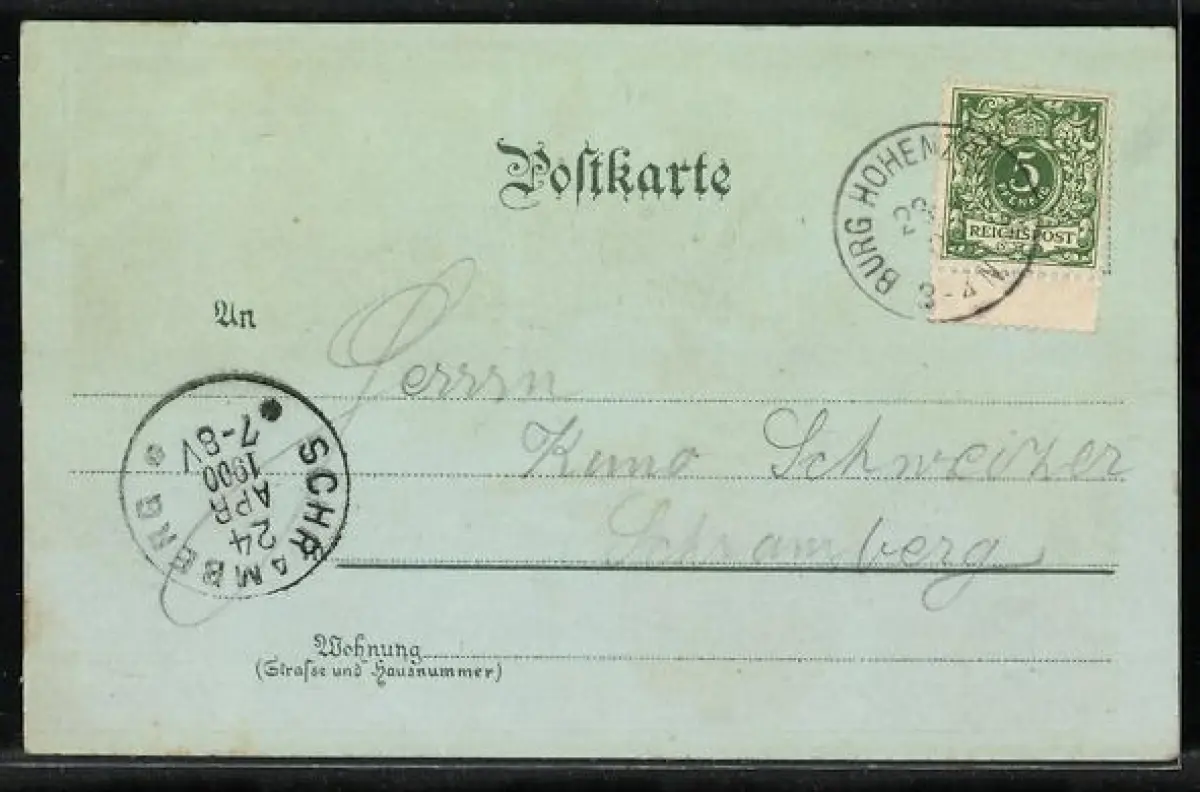 Postkarte
BURG HOHENZ
23
3-4 N
5
REICHSPOST
An
Herrrn
Kuno Schweizer
Schramberg
SCHRAMBERG
24
APR
1900
7-8V
Wohnung
(Strasse und Hausnummer)